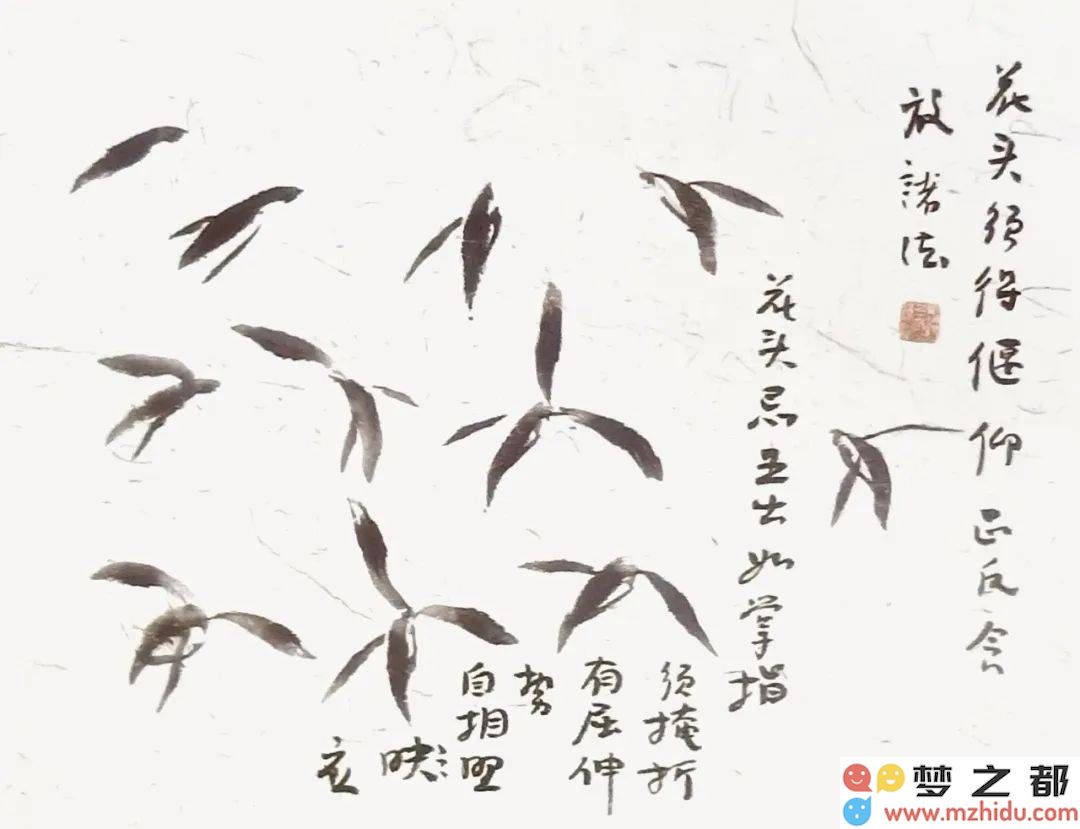 花头须得偃仰正反含
放諸法
花头忌五出如掌指
须掩折
有屈伸
势
自相照
映
梦之都
www.mzhidu.com